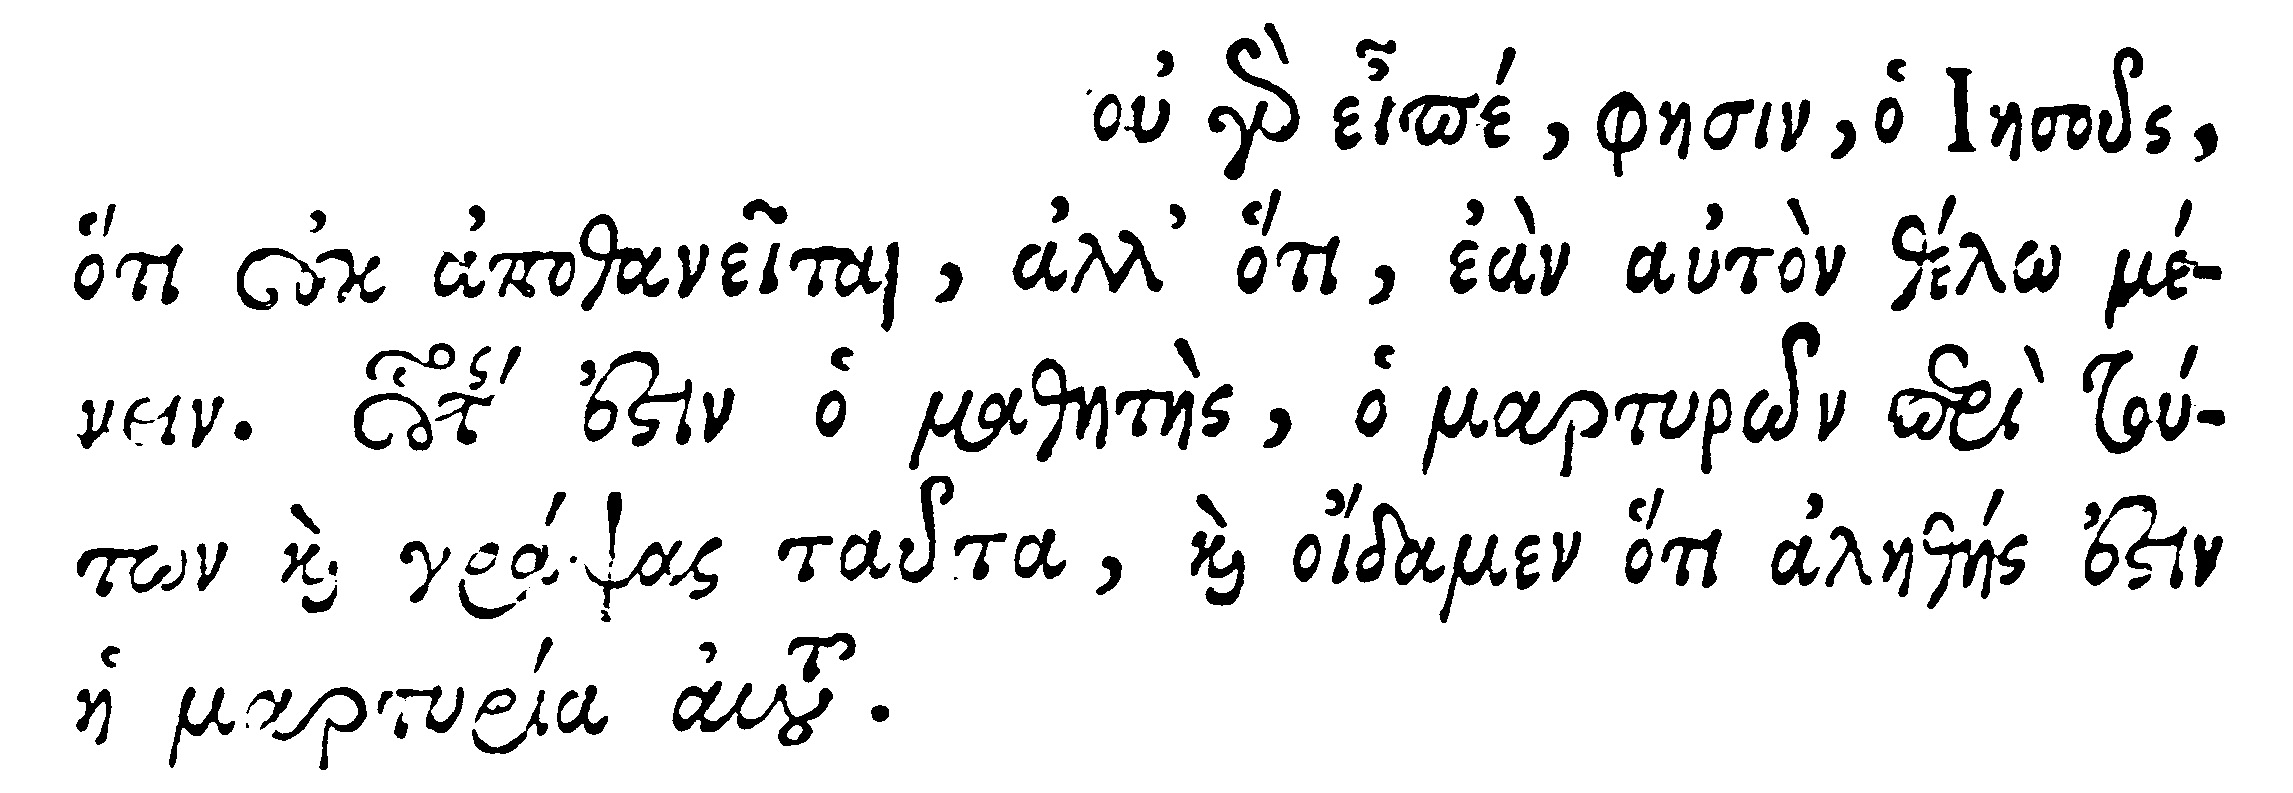 οὐ γὰρ εἶπέ, φησιν, ὁ Ιησοῦς,
ὅτι οὐκ ἀποθανεῖται, ἀλλ' ὅτι, ἐὰν αὐτὸν θέλω μέ-
νειν. οὗτός ἐστιν ὁ μαθητὴς, ὁ μαρτυρῶν περὶ τού-
των καὶ γράψας ταῦτα, καὶ οἴδαμεν ὅτι ἀληθής ἐστιν
ἡ μαρτυρία αὐτοῦ.